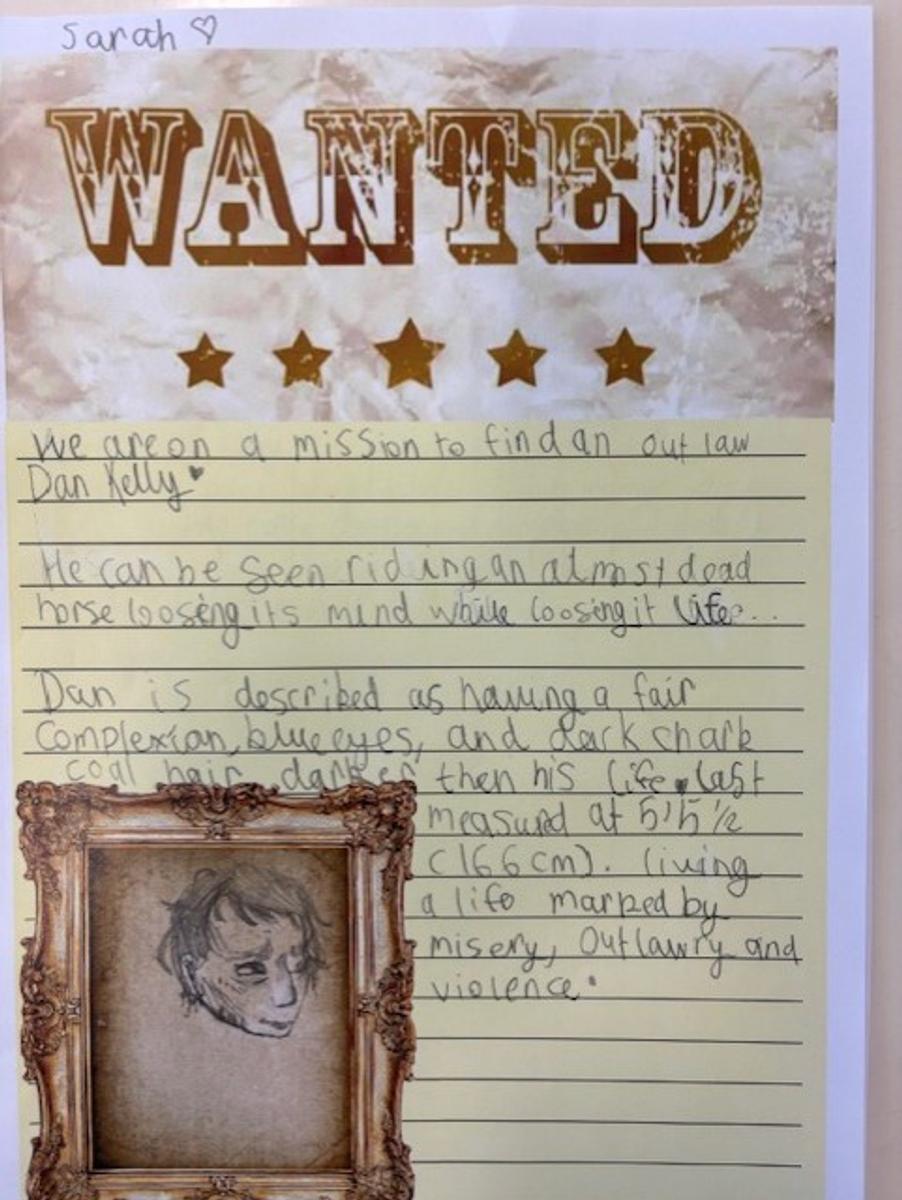 Sarah ♡
WANTED
We are on a mission to find an out law
Dan Kelly
He can be seen riding an almost dead
horse loosing its mind while loosing it life...
Dan is described as having a fair
complexian, blue eyes, and dark shark
coal hair darker then his life. last
measurd at 5'5 1/2
(166cm). living
a life marped by
misery, Outlawry and
violence.